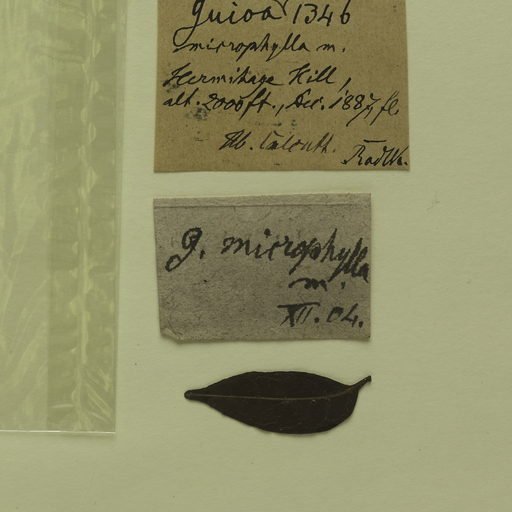 Guioa 1346
microphylla m.
Hermitage Hill,
alt. 2000 ft., Dec. 1887, fl.
Hb. Calcutt. Radlk.
G. microphylla
m.
XII. 04.